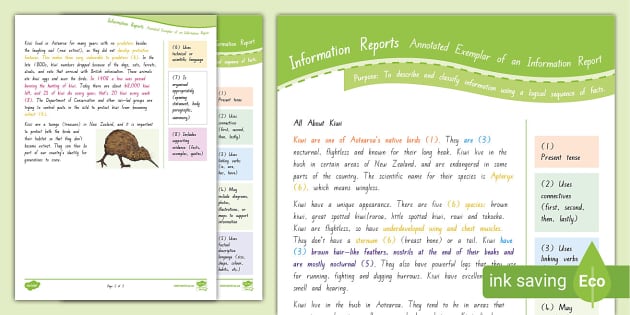 Kiwi lived in Aotearoa for many years with no predators besides
the laughing owl (now extinct), so they did not develop protective
features. This makes them very vulnerable to predators (6). In the
late 1800s, kiwi numbers dropped because of the dogs, cats, ferrets,
stoats, and rats that arrived with British colonisation. These animals
ate kiwi eggs and over the birds. In 1908 a law was passed
banning the hunting of kiwi. Today there are about 68,000 kiwi
left, and 2% of kiwi die every year; that's 20 kiwi every week
(8). The Department of Conservation and other iwi-led groups are
trying to control pests in the wild to protect kiwi from becoming
extinct (6).
Kiwi are a taonga (treasure) in New Zealand, and it is important
to protect both the birds and
their habitat so that they don't
become extinct. They can then be
part of our country's identity for
generations to come.
(6) Uses
technical or
scientific language
(7) Is
organised
appropriately
(opening
statement, body
paragraphs,
summary)
(8) Includes
supporting
evidence (facts,
examples, quotes)
Page 2 of 2
(1)
Present tense
(2) Uses
connectives
(first, second,
then, lastly)
(3) Uses
linking verbs
(is, are,
has, have)
(4) May
include diagrams,
photos,
illustrations, or
maps to support
information
(5) Uses
factual
descriptive
language (size,
shape, colour,
habits, etc.)
Information Reports Annotated Exemplar of an Information Report
Purpose: To describe and classify information using a logical sequence of facts.
All About Kiwi
Kiwi are one of Aotearoa's native birds (1). They are (3)
nocturnal, flightless and known for their long beak. Kiwi live in the
bush in certain areas of New Zealand, and are endangered in some
parts of the country. The scientific name for their species is Apteryx
(6), which means wingless.
Kiwi have a unique appearance. There are five (6) species: brown
kiwi, great spotted kiwi/roroa, little spotted kiwi, rowi and tokoeka.
Kiwi are flightless, so have underdeveloped wing and chest muscles.
They don't have a sternum (6) (breast bone) or a tail. Kiwi have
(3) brown hair-like feathers, nostrils at the end of their beaks and
are mostly nocturnal (5). They also have powerful legs that they use
for running, fighting and digging burrows. Kiwi have excellent
smell and hearing.
Kiwi live in the bush in Aotearoa. They tend to be in areas that
(1)
Present tense
(2) Uses
connectives
(first, second,
then, lastly)
(3) Uses
linking verbs
(4) May
ink saving Eco